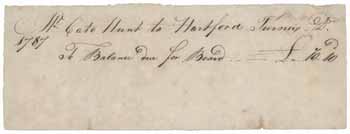 Mr Cato Hunt to Hartford Turner Dr
1787
To Balance due for Board £ 10. 10